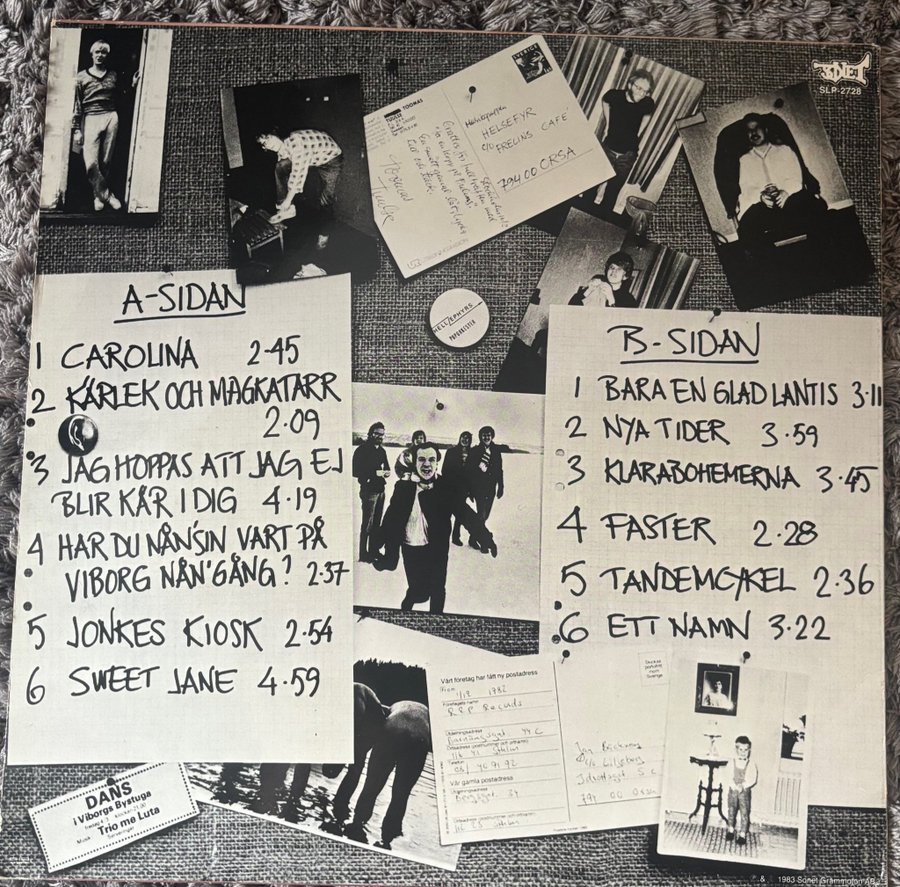 SONET
SLP-2728
SVERIGE
TOOMAS
HELSEFYR
C/O FRELINS CAFÉ
794 00 ORSA
HELLZEPHYRS
POPORKESTER
A-SIDAN
1 CAROLINA 2·45
2 KÄRLEK OCH MAGKATARR
2·09
3 JAG HOPPAS ATT JAG EJ
BLIR KÄR I DIG 4·19
4 HAR DU NÅN'SIN VART PÅ
VIBORG NÅN'GÅNG? 2·37
5 JONKES KIOSK 2·54
6 SWEET JANE 4·59
B-SIDAN
1 BARA EN GLAD LANTIS 3·11
2 NYA TIDER 3·59
3 KLARABOHEMERNA 3·45
4 FASTER 2·28
5 TANDEMCYKEL 2·36
6 ETT NAMN 3·22
Vårt företag har fått ny postadress
Från
1/12 1982
Företagets namn
Records
Utdelningsadress
44 C
Telefon
08/ 40 91 92
Vår gamla postadress
Utdelningsadress
Skickas
portofritt
inom
Sverige
Jan Bäckman
794 00 Orsa
DANS
i Viborgs Bystuga
Trio me Luta
Musik
Serveringar
& 1983 Sonet Grammofon AB